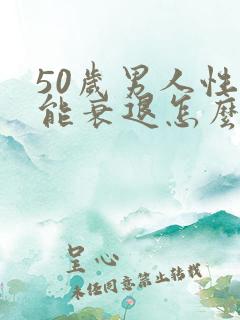 50歲男人性
能衰退怎麼
呈心
未经同意禁止转载